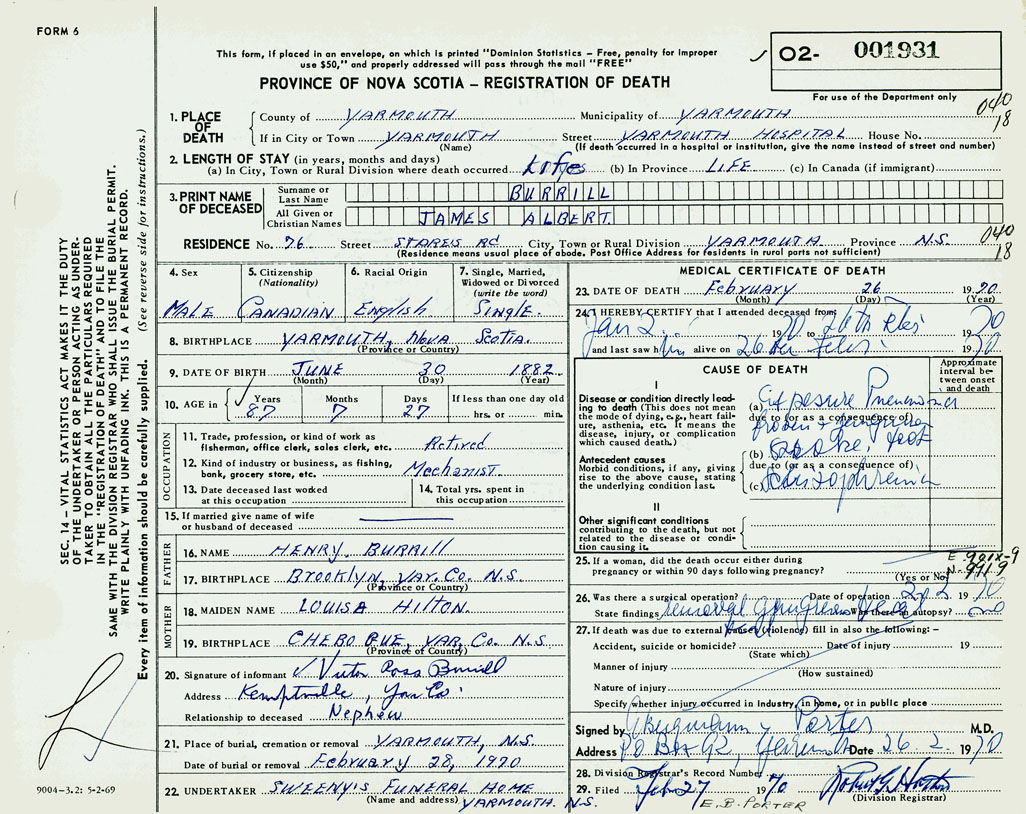 FORM 6
This form, if placed in an envelope, on which is printed "Dominion Statistics – Free, penalty for improper
use $50," and properly addressed will pass through the mail "FREE"
PROVINCE OF NOVA SCOTIA – REGISTRATION OF DEATH
02- 001931
For use of the Department only
040
18
1. PLACE OF DEATH
County of YARMOUTH Municipality of YARMOUTH
If in City or Town YARMOUTH Street YARMOUTH HOSPITAL House No.
(Name) (If death occurred in a hospital or institution, give the name instead of street and number)
2. LENGTH OF STAY (in years, months and days)
(a) In City, Town or Rural Division where death occurred (b) In Province LIFE (c) In Canada (if immigrant)
3. PRINT NAME OF DECEASED
Surname or Last Name BURRILL
All Given or Christian Names JAMES ALBERT
RESIDENCE No. 76 Street City, Town or Rural Division YARMOUTH Province N.S.
(Residence means usual place of abode. Post Office Address for residents in rural parts not sufficient)
040
18
4. Sex
Male
5. Citizenship
(Nationality)
Canadian
6. Racial Origin
English
7. Single, Married,
Widowed or Divorced
(write the word)
Single.
8. BIRTHPLACE YARMOUTH, Nova Scotia.
(Province or Country)
9. DATE OF BIRTH JUNE 30 1882
(Month) (Day) (Year)
10. AGE in Years Months Days If less than one day old
87 7 27 hrs. or min.
OCCUPATION
11. Trade, profession, or kind of work as
fisherman, office clerk, sales clerk, etc. Retired
12. Kind of industry or business, as fishing,
bank, grocery store, etc. Mechanist
13. Date deceased last worked
at this occupation
14. Total yrs. spent in
this occupation
15. If married give name of wife
or husband of deceased
FATHER
16. NAME HENRY. BURRILL
17. BIRTHPLACE Brooklyn, Yar. Co. N.S.
(Province or Country)
MOTHER
18. MAIDEN NAME LOUISA HILTON.
19. BIRTHPLACE CHEBOGUE, YAR, Co. N.S
(Province of Country)
20. Signature of informant Victor Ross Burrill
Address Kemptville, Yar Co.
Relationship to deceased Nephew
21. Place of burial, cremation or removal YARMOUTH, N.S.
Date of burial or removal February 28, 1970
22. UNDERTAKER SWEENY'S FUNERAL HOME
(Name and address) YARMOUTH. N.S.
MEDICAL CERTIFICATE OF DEATH
23. DATE OF DEATH February 26 1970
(Month) (Day) (Year)
24. I HEREBY CERTIFY that I attended deceased from
Jan 2 1970 to 26th Feb 1970
and last saw him alive on 26th Feb 1970
CAUSE OF DEATH
Approximate
interval be-
tween onset
and death
I
Disease or condition directly lead-
ing to death (This does not mean
the mode of dying, e.g., heart fail-
ure, asthenia, etc. It means the
disease, injury, or complication
which caused death.)
(a) Exposure Pneumonia
due to (or as a consequence of)
frozen & gangrene
(b) foot
Antecedent causes
Morbid conditions, if any, giving
rise to the above cause, stating
the underlying condition last.
due to (or as a consequence of)
(c) Schizophrenia
II
Other significant conditions
contributing to the death, but not
related to the disease or condi-
tion causing it.
25. If a woman, did the death occur either during
pregnancy or within 90 days following pregnancy?
(Yes or No)
E-901X-9
N-991-9
26. Was there a surgical operation? Date of operation 1970
State findings removal Was there an autopsy? no
27. If death was due to external causes (violence) fill in also the following:–
Accident, suicide or homicide? Date of injury 19
(State which)
Manner of injury
(How sustained)
Nature of injury
Specify whether injury occurred in Industry, in home, or in public place
Signed by Porter M.D.
Address PO Box 92, Yarmouth Date 26 2 1970
28. Division Registrar's Record Number
29. Filed Feb 27 1970
(Division Registrar)
E. B. PORTER
SEC. 14 – VITAL STATISTICS ACT MAKES IT THE DUTY
OF THE UNDERTAKER OR PERSON ACTING AS UNDER-
TAKER TO OBTAIN ALL THE PARTICULARS REQUIRED
IN THE "REGISTRATION OF DEATH" AND TO FILE THE
SAME WITH THE DIVISION REGISTRAR WHO SHALL ISSUE THE BURIAL PERMIT.
WRITE PLAINLY WITH UNFADING INK. THIS IS A PERMANENT RECORD.
Every item of information should be carefully supplied. (See reverse side for instructions.)
9004–3.2: 5-2-69